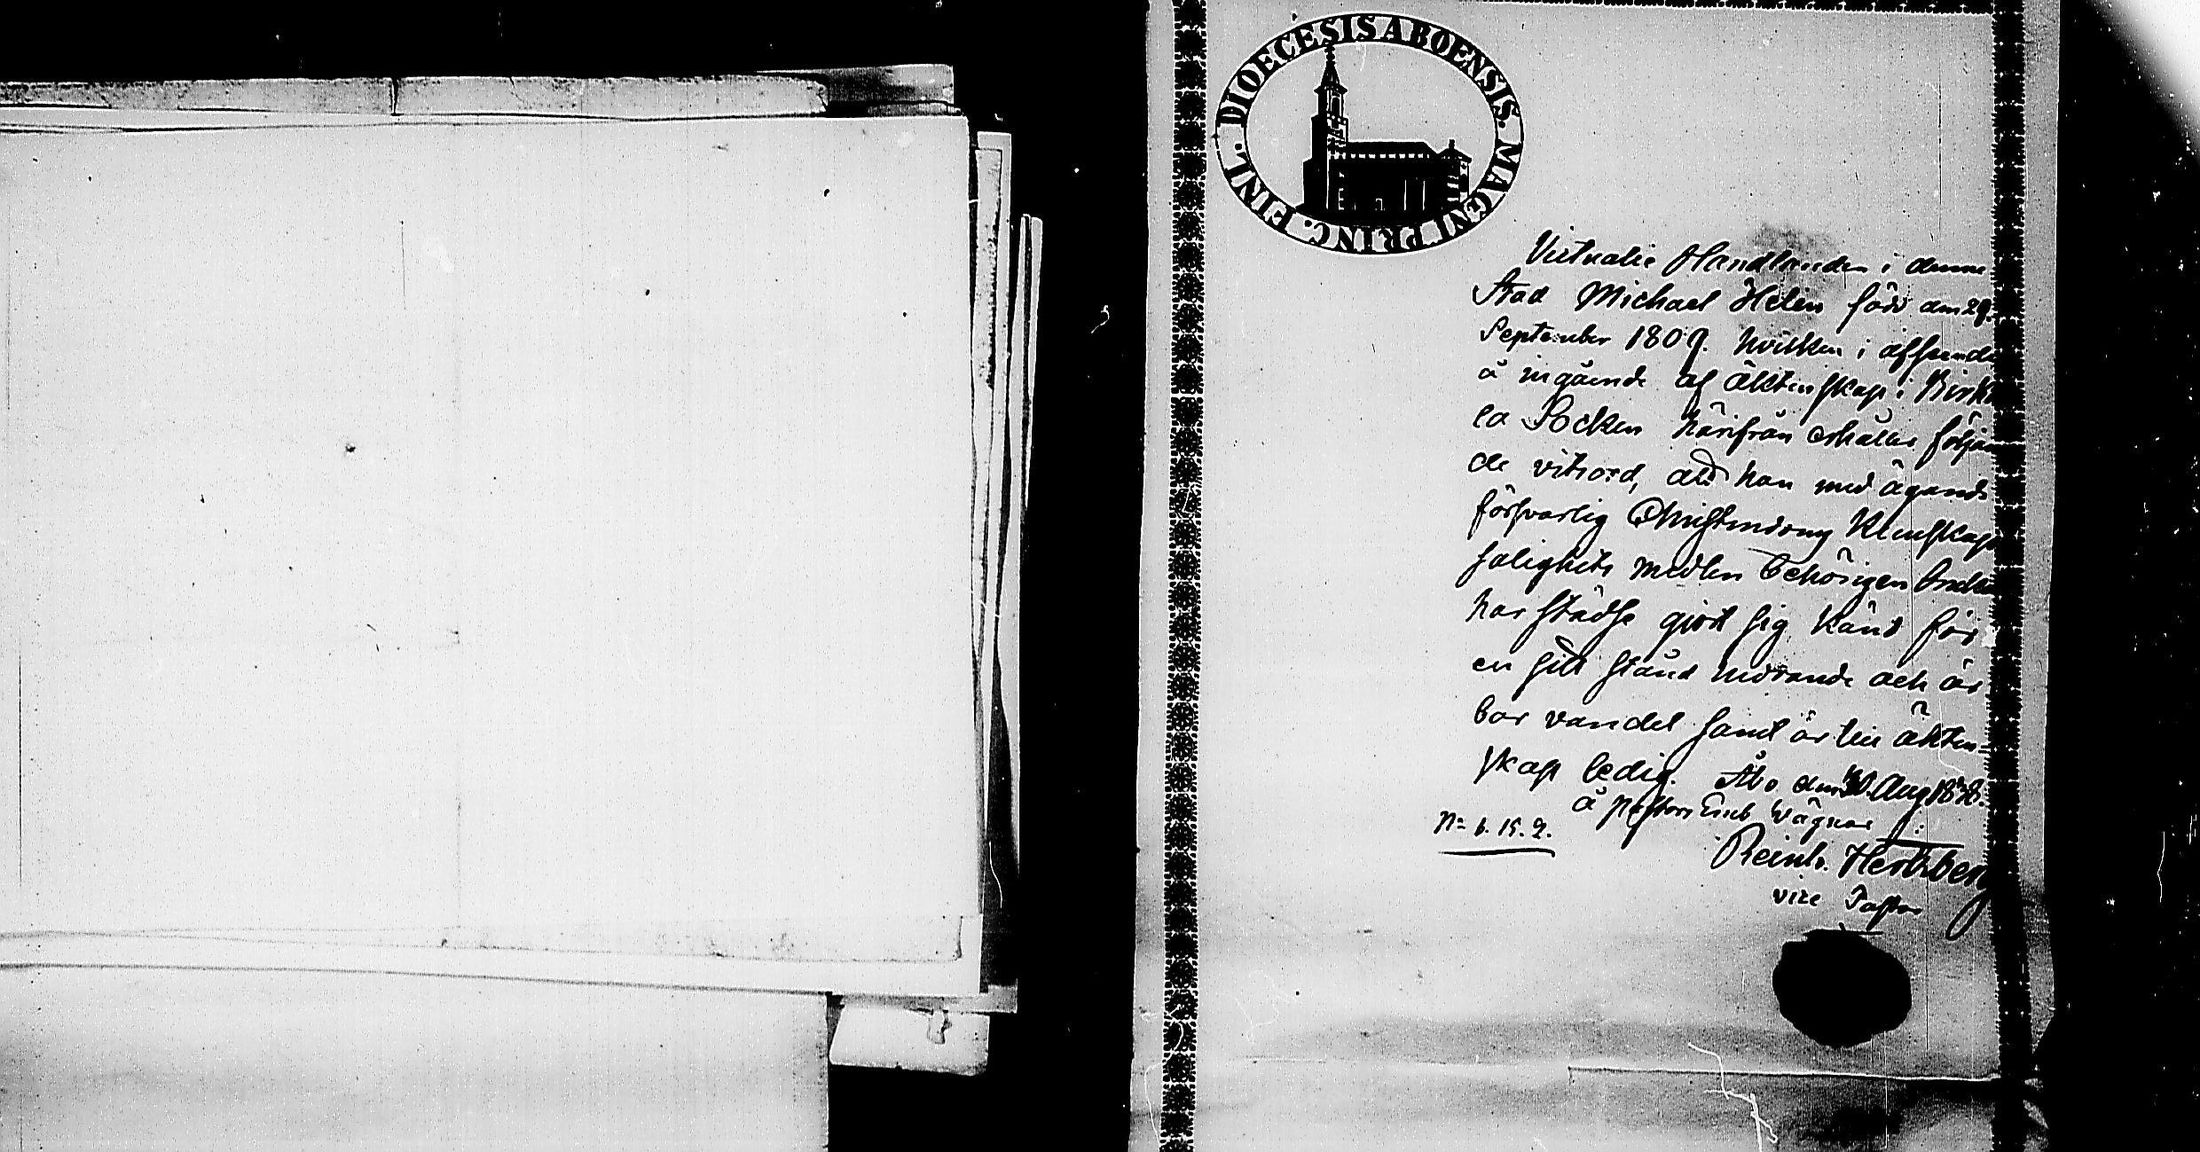 DIOECESIS ABOENSIS. MAGNI PRINC. FINL.
Victualie Handlanden i denna
Stad Michael Helin född den 29.
September 1809. hvilken i afseende
å ingående af äktenskap i Birka
la Socken härifrån erhåller följan
de vitsord, att han med ägande
försvarlig Christendoms Kunskap
salighets medlen behörigen brukar
har städse gjort sig känd för
en sitt stånd motsvarande och är
bar vandel samt är till äkten-
skap ledig. Åbo den 30 Aug 1838.
å Pastors Embets Vägnar
N: 6. 15. 2.
Reinh. Hertzberg
vice Pastor